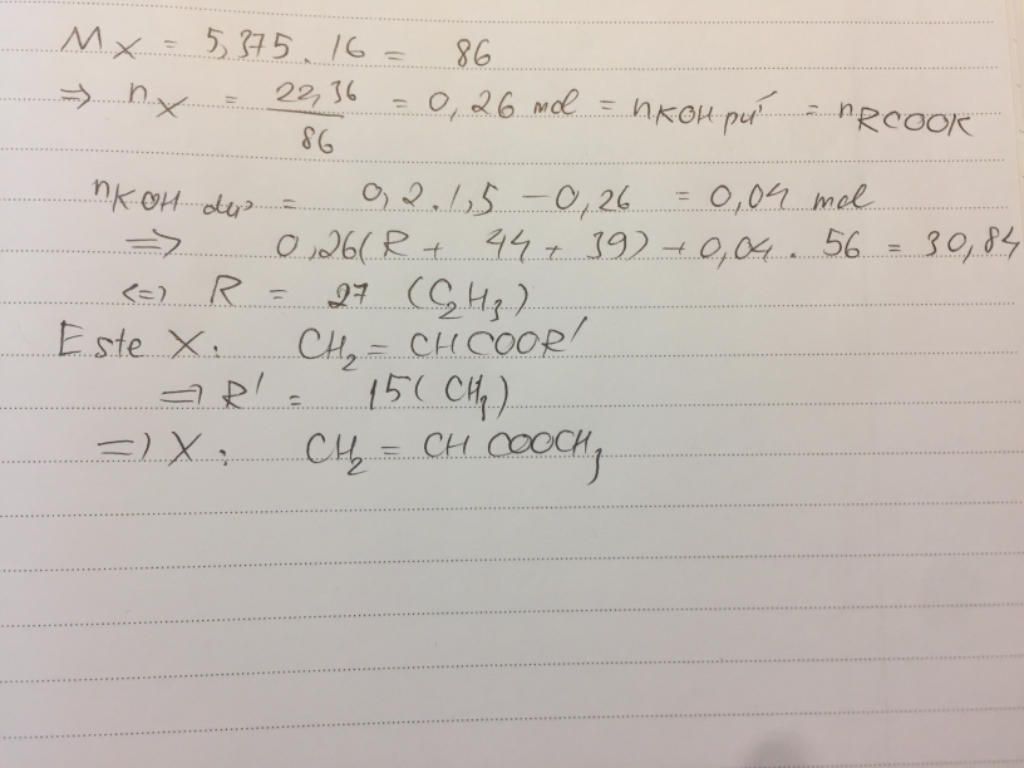 M_X = 5,375 . 16 = 86
⇒ n_X = 22,36/86 = 0,26 mol = n_KOH pứ = n_RCOOK
n_KOH dư = 0,2.1,5 - 0,26 = 0,04 mol
⇒ 0,26(R + 44 + 39) + 0,04 . 56 = 30,84
<=> R = 27 (C₂H₃)
Este X: CH₂ = CHCOOR'
=> R' = 15 (CH₃)
=> X: CH₂ = CH COOCH₃